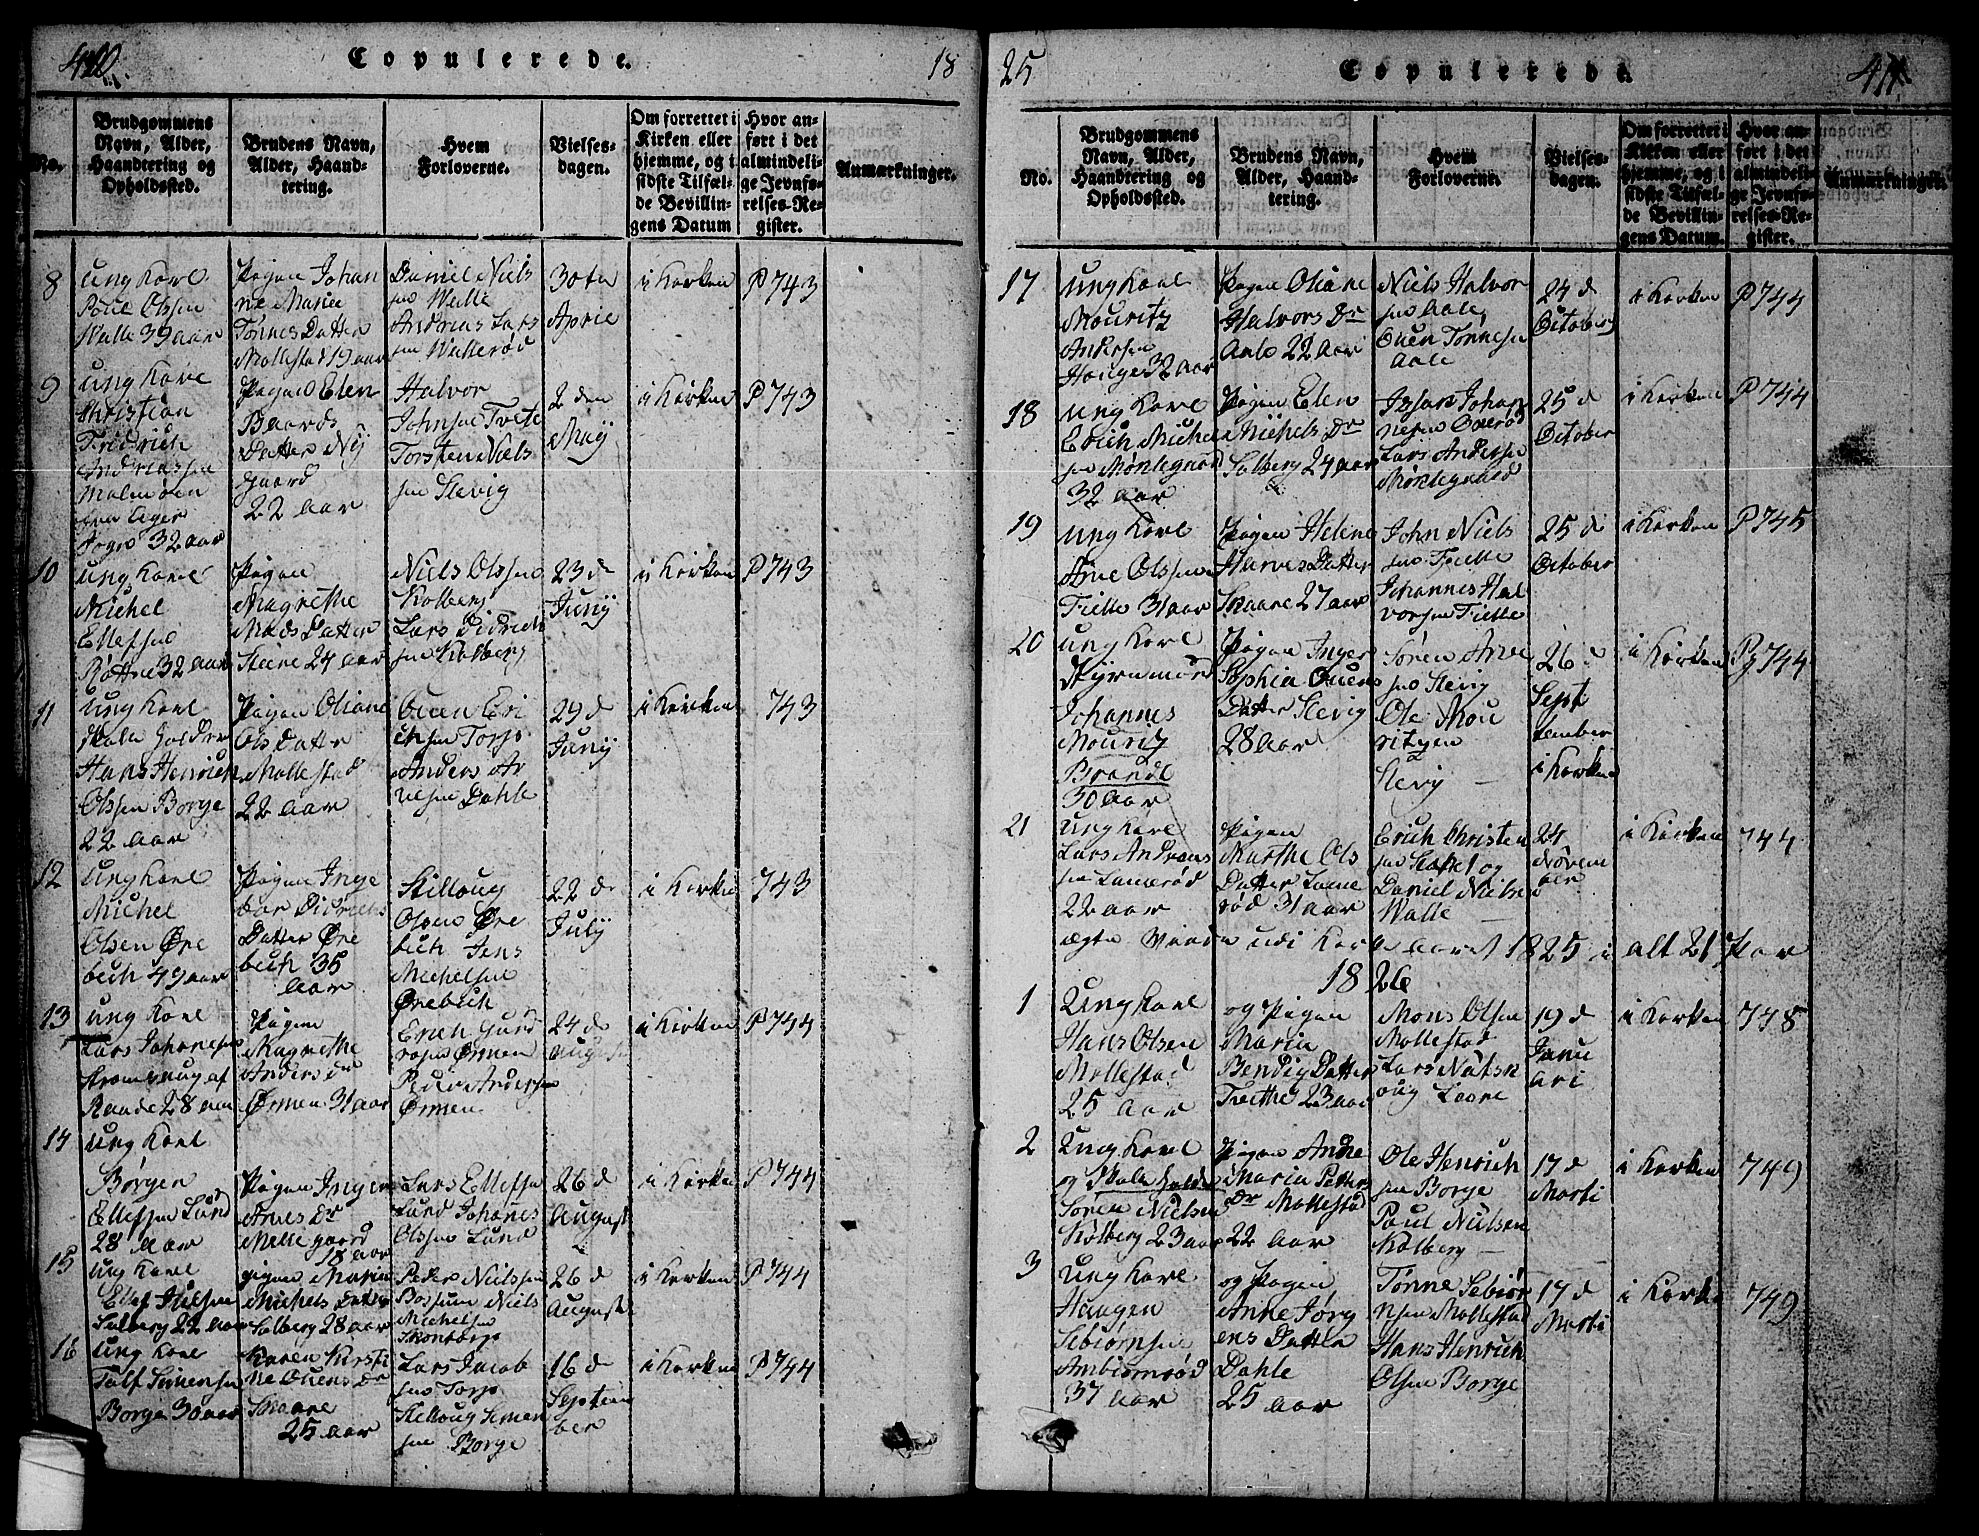 Copulerede.
18
No.
Brudgommens Navn, Alder, Haandtering og Opholdssted.
Brudens Navn, Alder, Haandtering.
Hvem Forloverne.
Vielsesdagen.
Om forrettet i Kirken eller hjemme, og i sidste Tilfælde Bevillingens Datum
Hvor anført i det almindelige Jevnførelses-Register.
Anmærkninger.
8
ung Karl
Poul Olssen
Walle 39 aar
Pigen Johan
ne Marie
Tønnes Datter
Mollestad 19 aar
Daniel Niels
sen Walle
Andreas Lars
sen Wallerød
30te
April
i Kirken
P 743
9
ung Karl
Christian
Fridrich
Andreassen
Malmøen
fra Eger
Sogn 32 aar
Pigen Elen
Baards
Datter Ny
gaard
22 aar
Halvor
Johnsen Trete
Torsten Niels
sen Slevig
2 den
Maÿ
i Kirken
P 743
10
ung Karl
Michel
Ellefsen
Røttne 32 aar
Pigen
Magrethe
Mads Datter
Steine 24 aar
Niels Olssen
Kolberg
Lars Didrich
sen Kolberg
23 d
Junÿ
i Kirken
P 743
11
ung Karl
skole holder
Hans Henrich
Olssen Borge
22 aar
Pigen Oliane
Ols Datter
Mollestad
22 aar
Ouen Eri
chsen Torp
Anders Ar
nesen Dahle
29 d
Junÿ
i Kirken
743
12
ung Karl
Michel
Olsen Øre
bech 49 aar
Pigen Inge
bor Didrichs
Datter Øre
bech 35
aar
Stilloug
Olsen Øre
bech Jens
Michelsen
Ørebech
22 d
Julÿ
i Kirken
743
13
ung Karl
Lars Johanesen
Raade 28 aar
Pigen
Magrethe
Anders Dr
Ørmen 31 aar
Erich Guld
Ørmen
Peder Andersen
Ørmen
24 d
August
i Kirken
P 744
14
ung Karl
Børgen
Ellefsen Lund
28 aar
Pigen Inger
Arnes Dr
Mellegaard
18 aar
Lars Ellefsen
Lund Johanes
Olssen Lund
26 d
August
i Kirken
P 744
15
ung Karl
Ellef Juelsen
Solberg 22 aar
Pigen Maria
Michels Datter
Solberg 28 aar
Peder Nielssen
Bossum Niels
Michelsen
Skontorp
26 d
August
i Kirken
P 744
16
ung Karl
Tolf Simensen
Borge 30 aar
Karen Kirsti
ne Ouens Dr
Skaare
25 aar
Lars Jacob
sen Torp
Stilloug Simen
sen Borge
16 d
Septem
ber
i Kirken
P 744
25
Copulerede.
No.
Brudgommens Navn, Alder, Haandtering og Opholdssted.
Brudens Navn, Alder, Haandtering.
Hvem Forloverne.
Vielsesdagen.
Om forrettet i Kirken eller hjemme, og i sidste Tilfælde Bevillingens Datum.
Hvor anført i det almindelige Jevnførelses-Register.
Anmærkninger.
17
ung Karl
Mouritz
Andersen
Hauge 32 aar
Pigen Oliane
Halvors Dr
Aale 22 aar
Niels Halvor
sen Aale,
Ouen Tønnesen
Aale
24 d
October
i Kirken
P 744
18
ung Karl
Erich Michel
sen Møklegrød
32 aar
Pigen Elen
Michels Dr
Solberg 24 aar
Johan
nesen
Lars Andersen
25 d
October
i Kirken
P 744
19
ung Karl
Arne Olssen
Fielle 31 aar
Pigen Helene
Harves Datter
Skaare 27 aar
John Niels
sen Fielle
Johannes Hal
vorsen Fielle
25 d
October
i Kirken
P 745
20
ung Karl
Styrmand
Johannes
Mouritz
Brandt
30 aar
Pigen Inger
Sophia Ouens
Datter Slevig
28 aar
Søren Arne
sen Slevig
Ole Mou
ritzen
Slevig
26 d
Sept
tember
i Kirken
i Kirken
Pg 744
21
ung Karl
Lars Andreas
sen Lunerød
22 aar
Pigen
Marthe Ols
Datter Lune
rød 31 aar
Erich Christen
sen og
Daniel Nielsen
Walle
24
Novem
ber
i Kirken
744
ægte Viede udi Kirke aaret 1825 i alt 21 Par
1826
1
Ung Karl
Hans Olsen
Mollestad
25 aar
og Pigen
Maria
Bendig Datter
Trethe 23 aar
Mons Olsen
Mollestad
19 d
Janu
ari
i Kirken
748
2
Ung Karl
og Skole holder
Søren Nielsen
Kolberg 23 aar
Pigen Andre
Maria Petter
Dr Mollestad
22 aar
Ole Henrich
sen Borge
Paul Nielsen
Kolberg
17 d
Marti
i Kirken
749
3
Ung Karl
Haagen
Sebiørnsen
Ambiørnrød
37 aar
og Pigen
Anne Jørg
ens Datter
Dahle
25 aar
Tønne Sebiør
nsen Mollestad
Hans Henrich
Olsen Borge
17 d
Marti
i Kirke
749